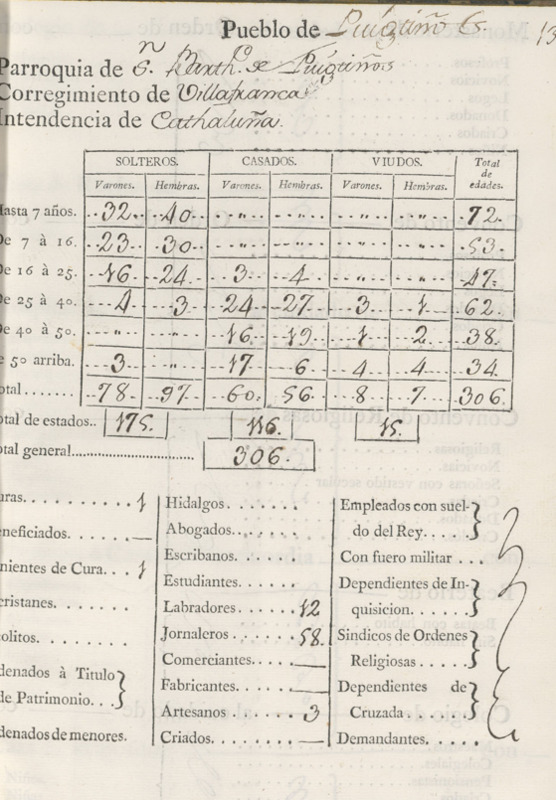 Pueblo de Puigtiños. 13
Parroquia de Sn. Barthe. de Puigtiños
Corregimiento de Villafranca
Intendencia de Cathaluña.
SOLTEROS. CASADOS. VIUDOS. Total de edades.
Varones. Hembras. Varones. Hembras. Varones. Hembras.
Hasta 7 años. 32 40 „ „ „ „ 72.
De 7 à 16. 23 30 „ „ „ „ 53.
De 16 à 25. 16 24 3 4 „ „ 47.
De 25 à 40. 4 3 24 27 3 1 62.
De 40 à 50. „ „ 16 19 1 2 38.
e 50 arriba. 3 „ 17 6 4 4 34
otal ....... 78 97 60 56 8 7 306.
otal de estados.. 175. 116. 15.
otal general.............................. 306.
uras.......... 1
eneficiados. —
nientes de Cura... 1
cristanes.
olitos.
denados à Titulo
de Patrimonio...
denados de menores.
Hidalgos.......
Abogados.......
Escribanos......
Estudiantes.....
Labradores..... 12
Jornaleros..... 58.
Comerciantes..... —
Fabricantes...... —
Artesanos...... 3
Criados......... —
Empleados con suel-
do del Rey.....
Con fuero militar ...
Dependientes de In-
quisicion......
Sindicos de Ordenes
Religiosas.....
Dependientes de
Cruzada.....
Demandantes.....